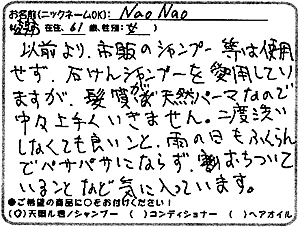 お名前(ニックネームOK): Nao Nao
在住、61歳、性別:女)
以前より、市販のシャンプー等は使用
せず、石けんシャンプーを愛用してい
ますが、髪質が天然パーマなので
中々上手くいきません。二度洗い
しなくても良いこと、雨の日もふくらん
でパサパサにならず、おちついて
いることなど気に入っています。
●ご希望の商品に○をお付けください!
(○)天使ル君ノシャンプー ( )コンディショナー ( )ヘアオイル